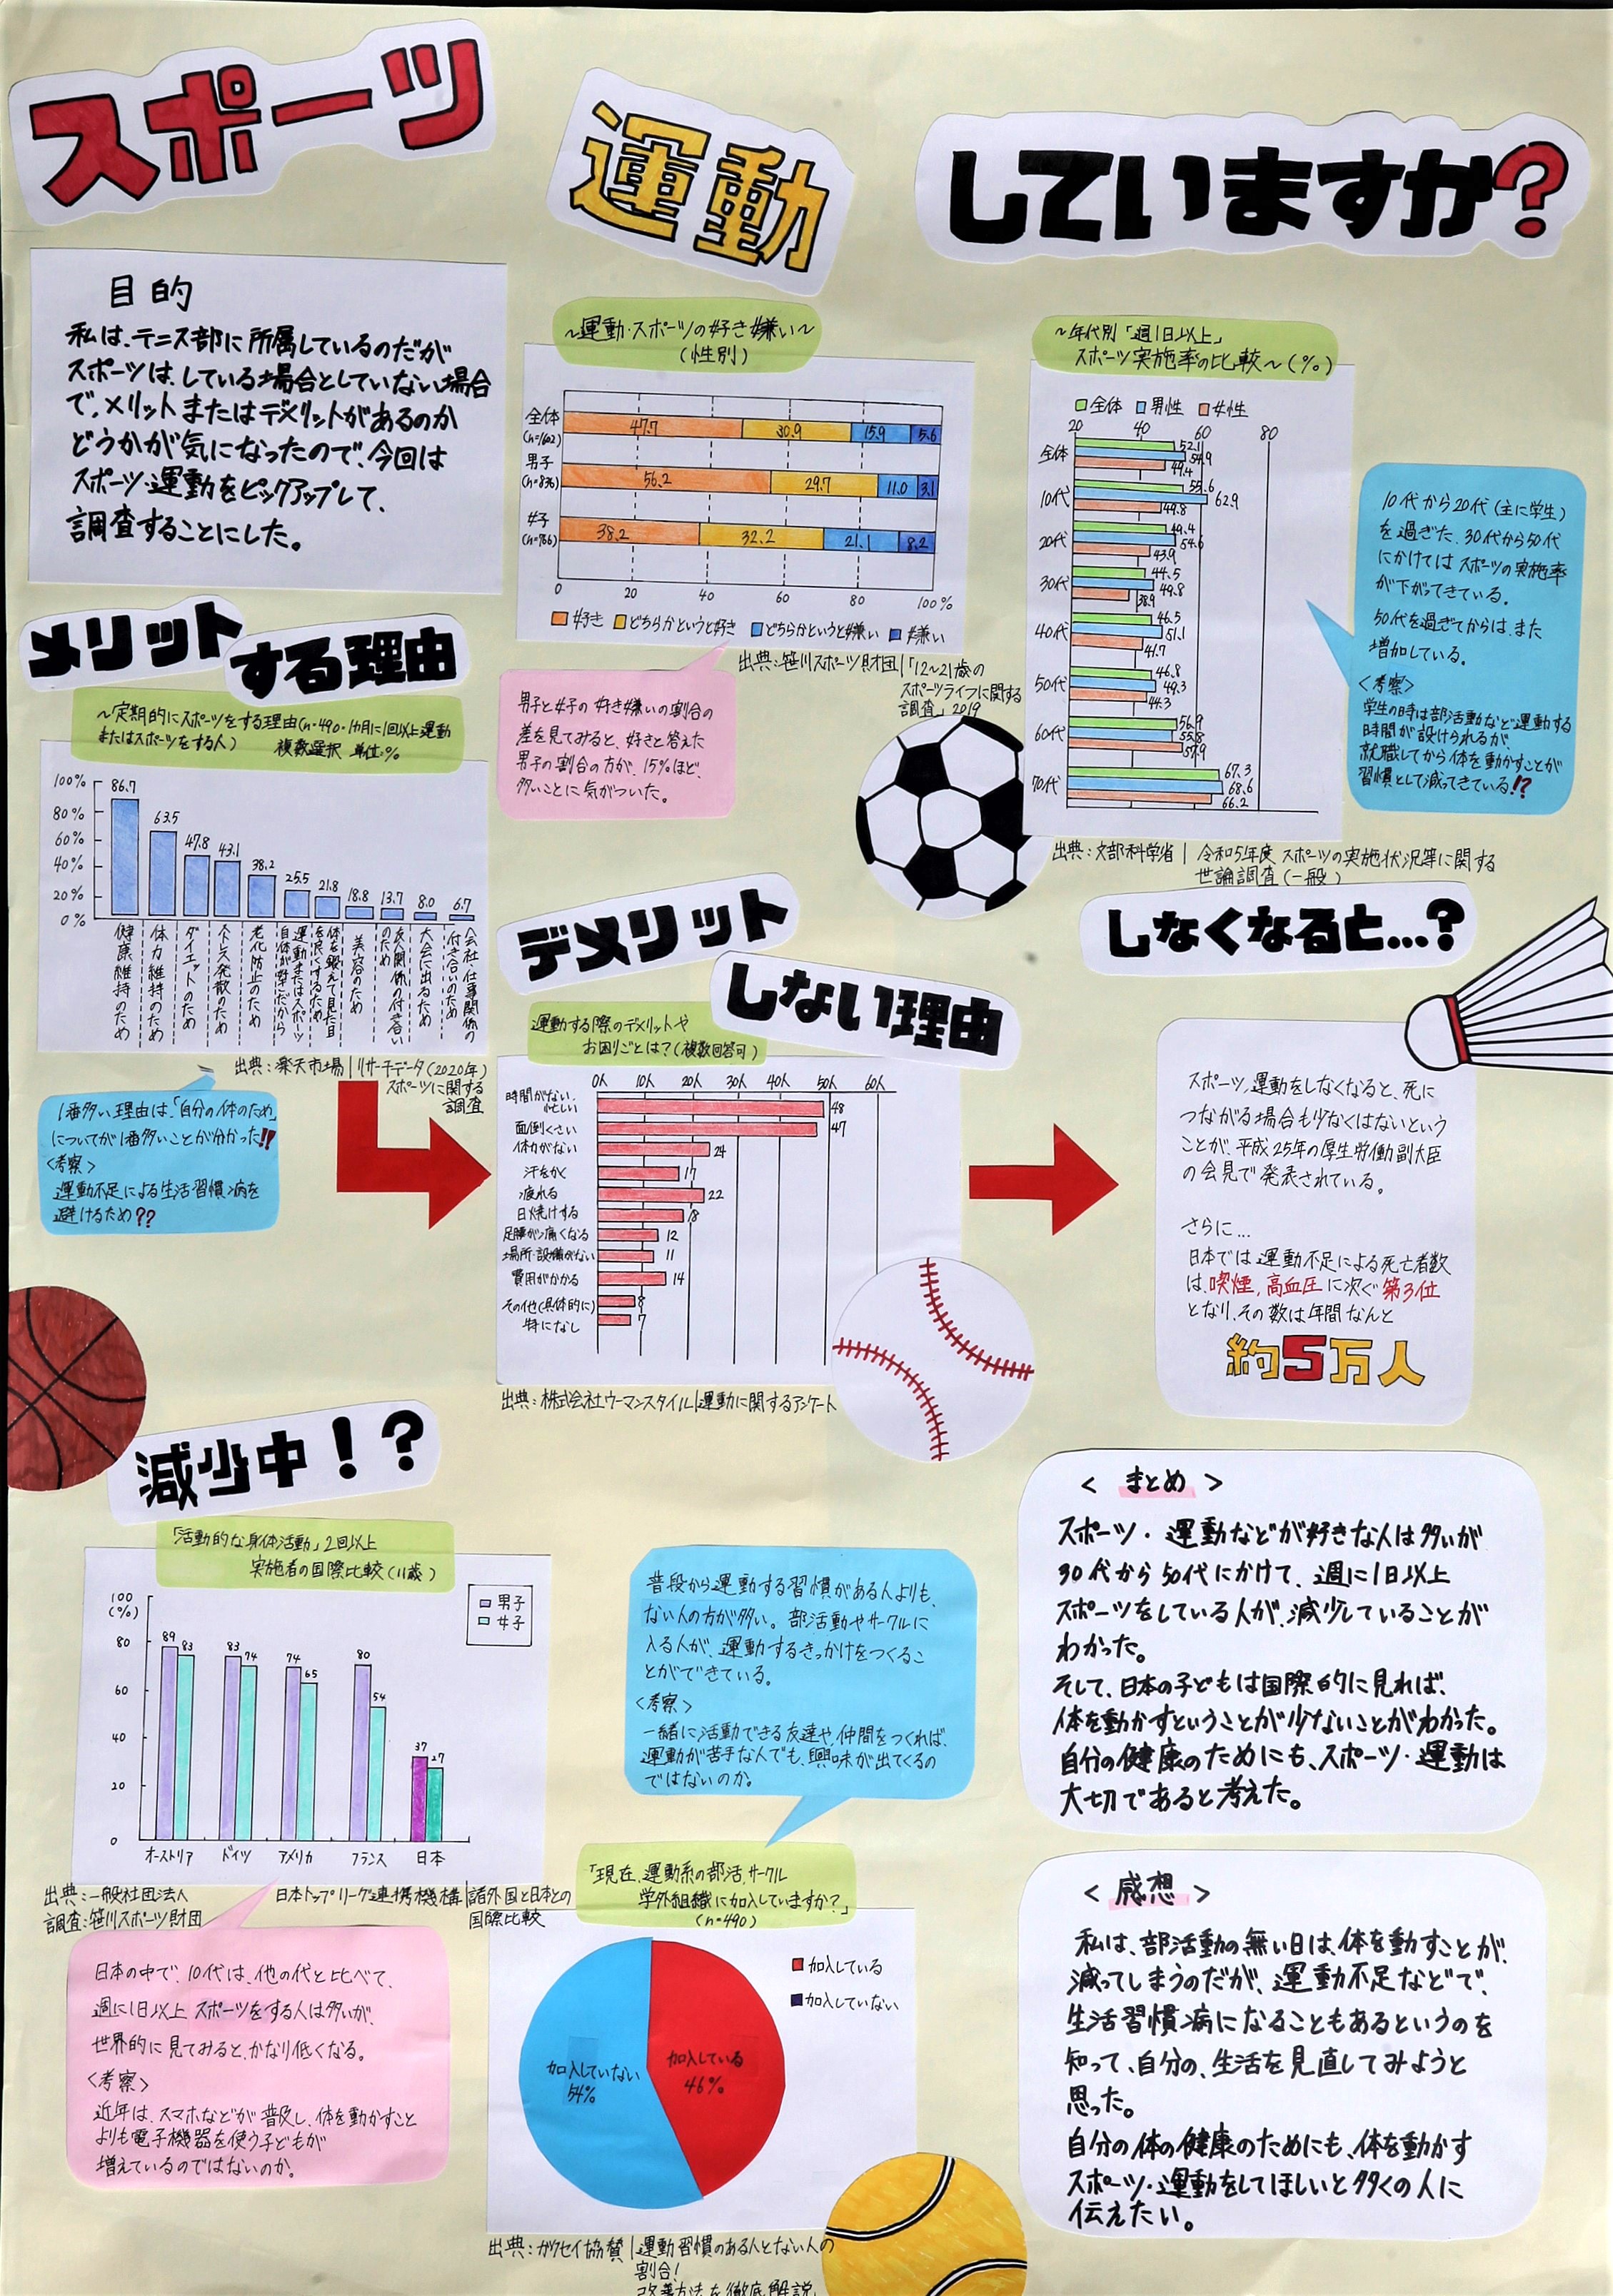 スポーツ
運動
していますか?
目的
私は、テニス部に所属しているのだが
スポーツは、している場合としていない場合
で、メリットまたはデメリットがあるのか
どうかが気になったので、今回は
スポーツ・運動をピックアップして、
調査することにした。
~運動・スポーツの好き嫌い~
(性別)
全体
(n=1602)
47.7 30.9 15.9 5.6
男子
(n=836)
56.2 29.7 11.0 3.1
女子
(n=766)
38.2 32.2 21.1 8.2
0 20 40 60 80 100%
好き どちらかというと好き どちらかというと嫌い 嫌い
出典:笹川スポーツ財団|「12~21歳の
スポーツライフに関する
調査」2019
男子と女子の好き嫌いの割合の
差を見てみると、好きと答えた
男子の割合の方が、15%ほど、
多いことに気がついた。
~年代別「週1日以上」
スポーツ実施率の比較~(%)
全体 男性 女性
20 40 60 80
全体 52.1 54.9 49.4
10代 55.6 62.9 49.8
20代 49.4 54.6 43.9
30代 44.5 49.8 38.9
40代 46.5 51.1 41.7
50代 46.8 49.3 44.3
60代 56.9 55.8 57.9
70代 67.3 68.6 66.2
出典:文部科学省| 令和5年度 スポーツの実施状況等に関する
世論調査(一般)
10代から20代(主に学生)
を過ぎた、30代から50代
にかけてはスポーツの実施率
が下がってきている。
50代を過ぎてからは、また
増加している。
<考察>
学生の時は部活動など運動する
時間が設けられるが、
就職してから体を動かすことが
習慣として減ってきている!?
メリット
する理由
~定期的にスポーツをする理由(n=490・1カ月に1回以上運動
またはスポーツをする人) 複数選択 単位:%
100%
80%
60%
40%
20%
0%
86.7 63.5 47.8 43.1 38.2 25.5 21.8 18.8 13.7 8.0 6.7
健康維持のため
体力維持のため
ダイエットのため
ストレス発散のため
老化防止のため
運動またはスポーツ
自体が好きだから
体を鍛えて見た目
を良くするため
美容のため
友人関係の付き合い
のため
大会に出るため
会社・仕事関係の
付き合いのため
出典:楽天市場|リサーチデータ(2020年)
スポーツに関する
調査
1番多い理由は、「自分の体のため」
についてが1番多いことが分かった!!
<考察>
運動不足による生活習慣病を
避けるため??
デメリット
しない理由
運動する際のデメリットや
お困りごとは?(複数回答可)
0人 10人 20人 30人 40人 50人 60人
時間がない、
忙しい 48
面倒くさい 47
体力がない 24
汗をかく 17
疲れる 22
日焼けする 18
足腰が痛くなる 12
場所・設備がない 11
費用がかかる 14
その他(具体的に) 8
特になし 7
出典:株式会社ウーマンスタイル|運動に関するアンケート
しなくなると…?
スポーツ、運動をしなくなると、死に
つながる場合も少なくはないという
ことが、平成25年の厚生労働副大臣
の会見で発表されている。
さらに…
日本では運動不足による死亡者数
は、喫煙、高血圧に次ぐ第3位
となり、その数は年間なんと
約5万人
減少中!?
「活動的な身体活動」2回以上
実施者の国際比較(11歳)
男子
女子
100
(%)
80
60
40
20
0
89 83 83 74 74 65 80 54 37 27
オーストリア ドイツ アメリカ フランス 日本
出典:一般社団法人 日本トップリーグ連携機構|諸外国と日本との
国際比較
調査:笹川スポーツ財団
日本の中で、10代は、他の代と比べて、
週に1日以上 スポーツをする人は多いが、
世界的に見てみると、かなり低くなる。
<考察>
近年は、スマホなどが普及し、体を動かすこと
よりも電子機器を使う子どもが
増えているのではないのか。
普段から運動する習慣がある人よりも、
ない人の方が多い。部活動やサークルに
入る人が、運動するきっかけをつくるこ
とができている。
<考察>
一緒に活動できる友達や、仲間をつくれば、
運動が苦手な人でも、興味が出てくるの
ではないのか。
「現在、運動系の部活、サークル
学外組織に加入していますか?」
(n=490)
加入している
加入していない
加入していない
54%
加入している
46%
出典:ガクセイ協賛|運動習慣のある人とない人の
割合!
改善方法を徹底解説
<まとめ>
スポーツ・運動などが好きな人は多いが
30代から50代にかけて、週に1日以上
スポーツをしている人が、減少していることが
わかった。
そして、日本の子どもは国際的に見れば、
体を動かすということが少ないことがわかった。
自分の健康のためにも、スポーツ・運動は
大切であると考えた。
<感想>
私は、部活動の無い日は、体を動すことが、
減ってしまうのだが、運動不足などで、
生活習慣病になることもあるというのを
知って、自分の、生活を見直してみようと
思った。
自分の体の健康のためにも、体を動かす
スポーツ・運動をしてほしいと多くの人に
伝えたい。